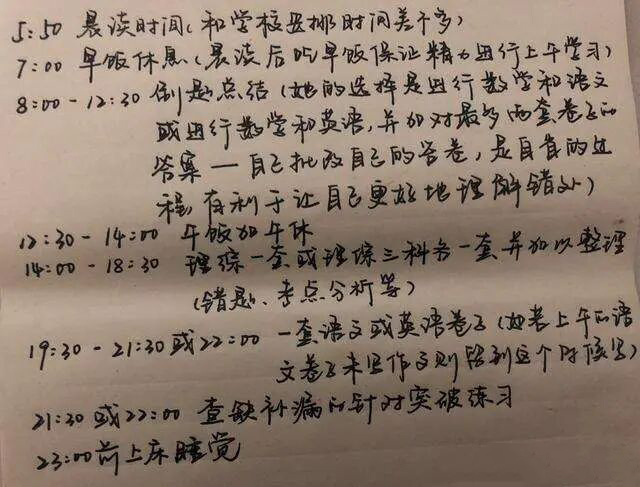 5:50 晨读时间(和学校安排时间差不多)
7:00 早饭休息(晨读后吃早饭保证精力进行上午学习)
8:00-12:30 倒是总结(她的选择是进行数学和语文
或进行数学和英语,并加对最多两套卷子的
答案—自己批改自己的答卷,是自省的过
程,有利于让自己更好地理解错处)
12:30-14:00 午饭加午休
14:00-18:30 理综一套或理综三科各一套并加以整理
(错题、考点分析等)
19:30-21:30或22:00 一套语文或英语卷子(如若上午的语
文卷子未写作文则留到这个时候写)
21:30或22:00 查缺补漏的针对突破练习
23:00前上床睡觉